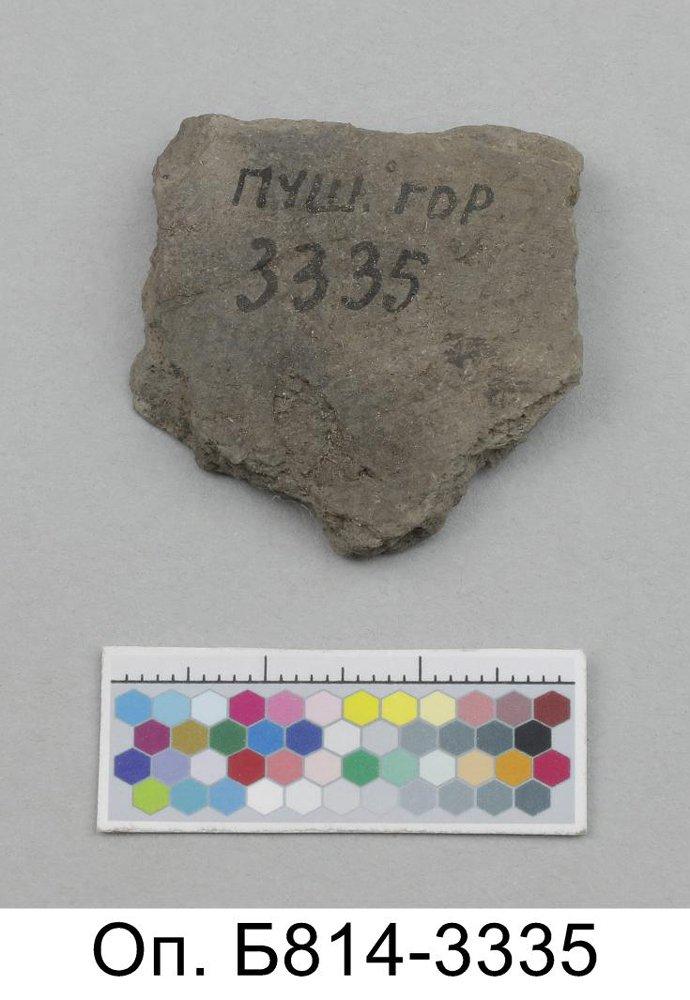 ПУШ. ГОР
3335
Оп. Б814-3335